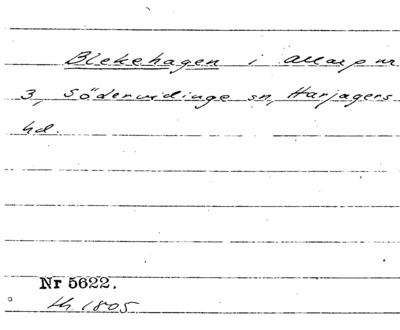 Blekehagen i Allarp nr
3, Södervidinge sn, Harjagers
hd.
Nr 5622.
LH. 1805